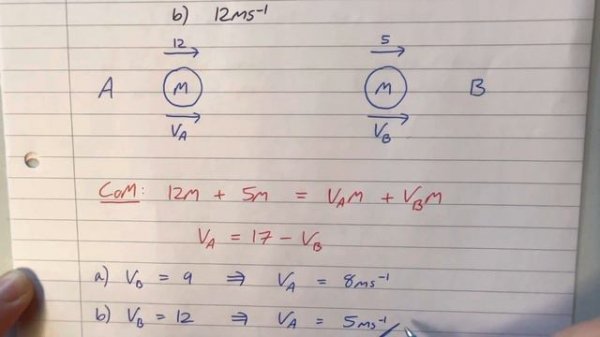 b) 12ms⁻¹
12 5
A M M B
V_A V_B
COM: 12M + 5M = V_AM + V_BM
V_A = 17 - V_B
a) V_B = 9 ⇒ V_A = 8ms⁻¹
b) V_B = 12 ⇒ V_A = 5ms⁻¹